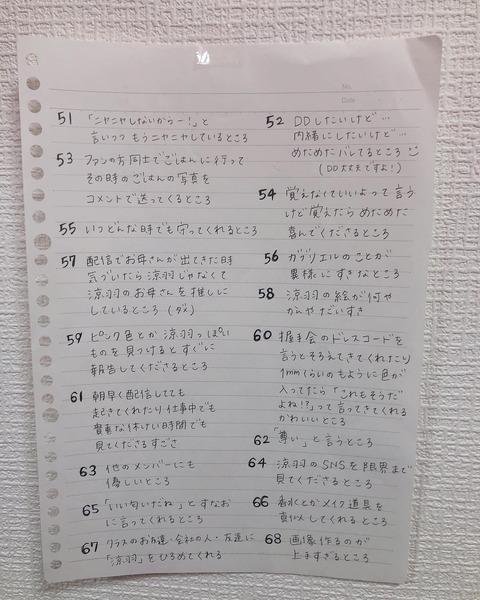 No.
Date
51 「ニヤニヤしないからー！」と
言いつつ もうニヤニヤしているところ
52 DDしたいけど…
内緒にしたいけど…
めためたバレてるところ
(DD大丈夫ですよ！)
53 ファンの方同士でごはんに行って
その時のごはんの写真を
コメントで送ってくるところ
54 覚えなくていいよって言う
けど覚えたらめためた
喜んでくださるところ
55 いつどんな時でも守ってくれるところ
56 ガブリエルのことが
異様にすきなところ
57 配信でお母さんが出てきた時
気づいたら涼羽じゃなくて
涼羽のお母さんを推しに
しているところ (ダメ)
58 涼羽の絵が何や
かんやだいすき
59 ピンク色とか 涼羽っぽい
ものを見つけるとすぐに
報告してくれるところ
60 握手会のドレスコードを
言うとそろえてきてくれたり
1mmくらいのもように色が
入ってたら「これもそうだ
よね！？」って言ってきてくれる
かわいいところ
61 朝早く配信してても
起きてくれたり仕事中でも
貴重な休けい時間でも
見てくださるすごさ
62 「尊い」と言うところ
63 他のメンバーにも
優しいところ
64 涼羽のSNSを限界まで
見てくださるところ
65 「いい匂いだね」とすなお
に言ってくれるところ
66 香水とかメイク道具を
真似してくれるところ
67 クラスのお友達・会社の人・友達に
「涼羽」をひろめてくれる
68 画像作るのが
上手すぎるところ